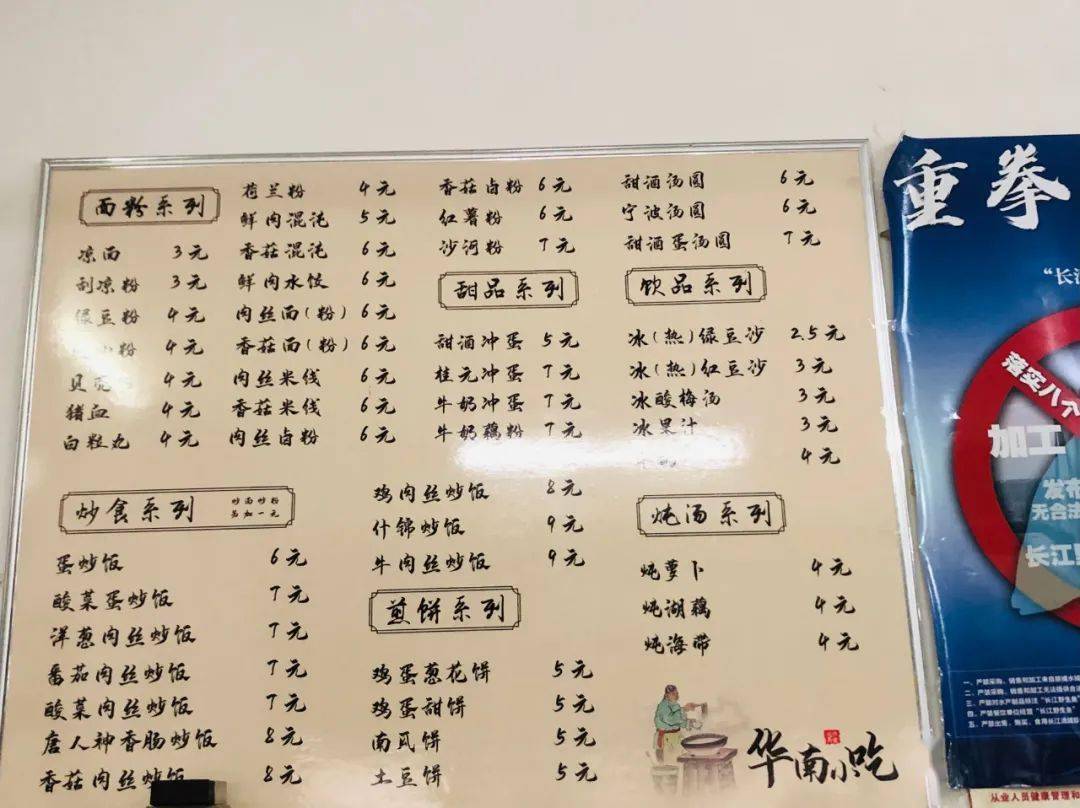 面粉系列
凉面 3元
刮凉粉 3元
绿豆粉 4元
粉 4元
4元
猪血 4元
白粒丸 4元
荷兰粉 4元
鲜肉混沌 5元
香菇混沌 6元
鲜肉水饺 6元
肉丝面(粉) 6元
香菇面(粉) 6元
肉丝米线 6元
香菇米线 6元
肉丝卤粉 6元
香菇卤粉 6元
红薯粉 6元
沙河粉 7元
甜品系列
甜酒冲蛋 5元
桂元冲蛋 7元
牛奶冲蛋 7元
牛奶藕粉 7元
甜酒汤圆 6元
宁波汤圆 6元
甜酒蛋汤圆 7元
饮品系列
冰(热)绿豆沙 2.5元
冰(热)红豆沙 3元
冰酸梅汤 3元
冰果汁 3元
4元
炒食系列
炒面炒粉
另加一元
蛋炒饭 6元
酸菜蛋炒饭 7元
洋葱肉丝炒饭 7元
番茄肉丝炒饭 7元
酸菜肉丝炒饭 7元
唐人神香肠炒饭 8元
香菇肉丝炒饭 8元
鸡肉丝炒饭 8元
什锦炒饭 9元
牛肉丝炒饭 9元
煎饼系列
鸡蛋葱花饼 5元
鸡蛋甜饼 5元
南瓜饼 5元
土豆饼 5元
炖汤系列
炖萝卜 4元
炖湖藕 4元
炖海带 4元
华南小吃
重拳
“长江
落实八个
加工
发布
无合法
长江
从业人员健康管理和